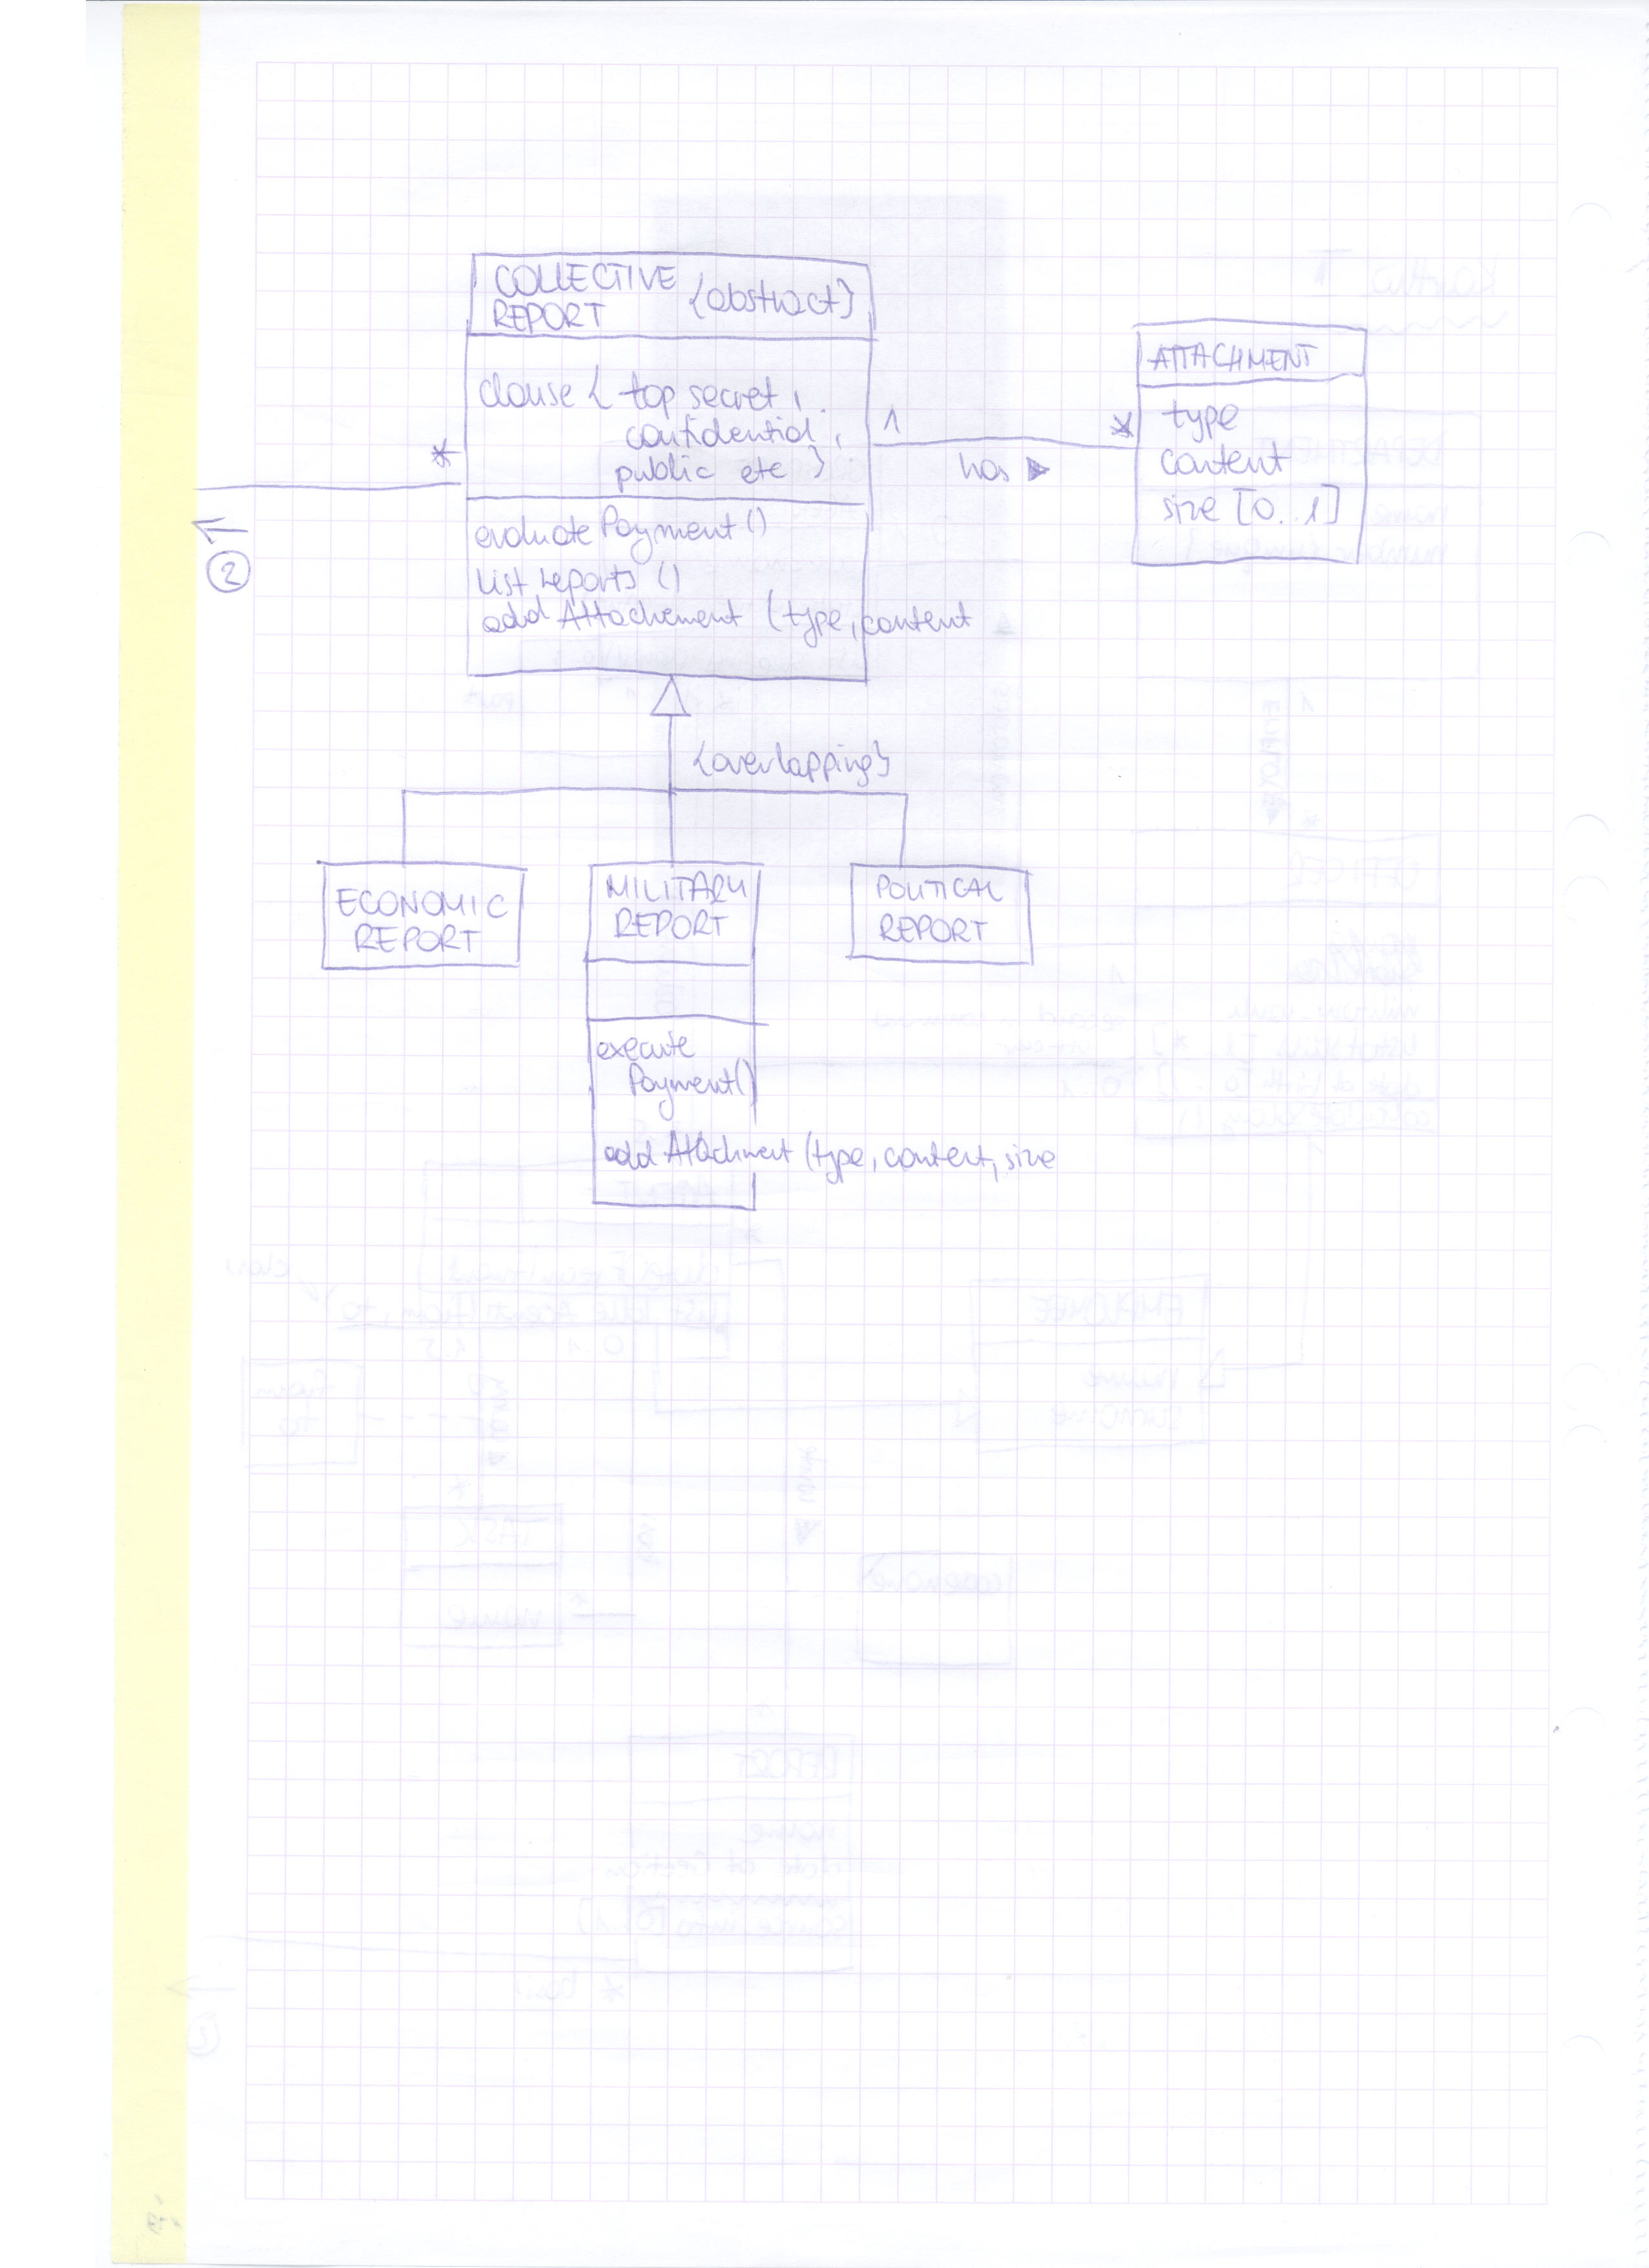 COLLECTIVE {abstract}
REPORT
clause { top secret,
confidential,
public etc }
evaluate Payment ()
list reports ()
add Attachement (type, content
*
1
has ▶
*
ATTACHMENT
type
content
size [0..1]
←
②
{overlapping}
ECONOMIC
REPORT
MILITARY
REPORT
execute
Payment()
add Attachment (type, content, size
POLITICAL
REPORT